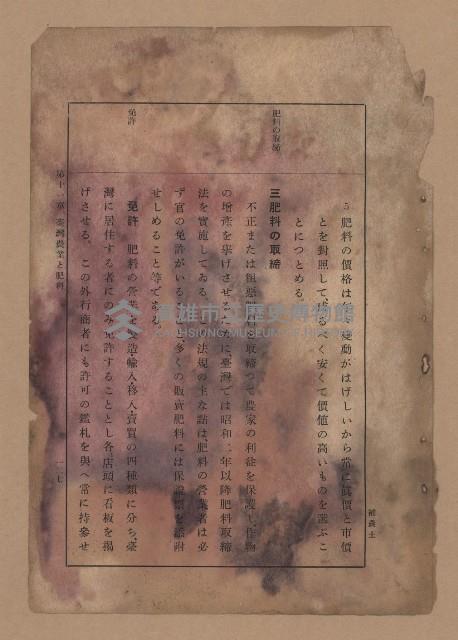 補農土
肥料の取締
免許
5 肥料の價格は 變動がはげしいから常に 價と市價
とを對照して なるべく安くて價値の高いものを選ぶこ
とにつとめる。
三 肥料の取締
不正または粗惡 肥料 取締つて農家の利益を保護し作物
の增產を擧げさせる に臺灣では昭和二年以降肥料取締
法を實施してゐる。 法規の主な點は肥料の營業者は必
ず官の免許がいる 多くの販賣肥料には保證票を添附
せしめること等である。
免許 肥料の營業 製造輸入移入賣買の四種類に分ち臺
灣に居住する者にのみ免許することとし各店頭に看板を揭
げさせる。この外行商者にも許可の鑑札を與へ常に持參せ
第十一章 臺灣農業と肥料
一一七
高雄市立歷史博物館
KAOHSIUNG MUSEUM OF HISTORY